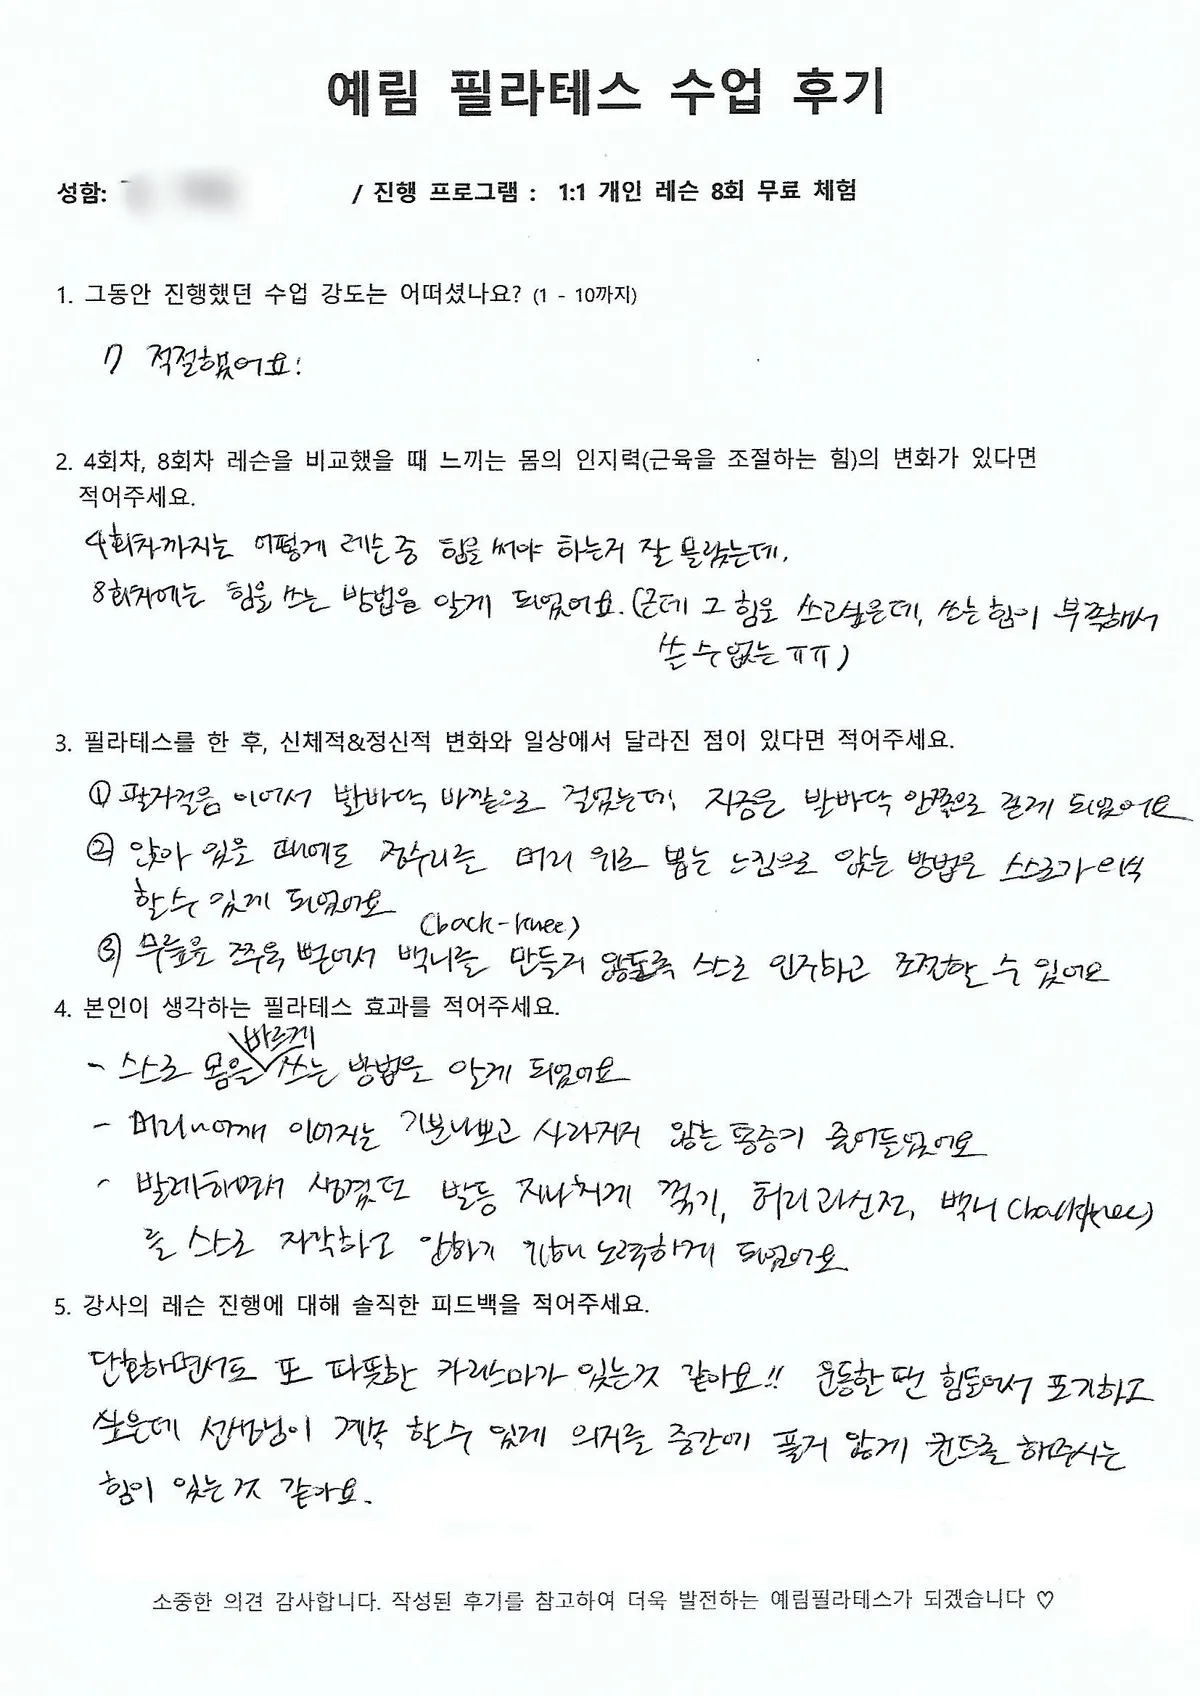 예림 필라테스 수업 후기
성함: / 진행 프로그램 : 1:1 개인 레슨 8회 무료 체험
1. 그동안 진행했던 수업 강도는 어떠셨나요? (1 - 10까지)
7 적절했어요!
2. 4회차, 8회차 레슨을 비교했을 때 느끼는 몸의 인지력(근육을 조절하는 힘)의 변화가 있다면
적어주세요.
4회차까지는 어떻게 레슨 중 힘을 써야 하는지 잘 몰랐는데,
8회차에는 힘을 쓰는 방법을 알게 되었어요. (근데 그 힘을 쓰고싶은데, 쓰는 힘이 부족해서
쓸 수 없는 ㅠㅠ)
3. 필라테스를 한 후, 신체적&정신적 변화와 일상에서 달라진 점이 있다면 적어주세요.
① 팔자걸음 이어서 발바닥 바깥으로 걸었는데, 지금은 발바닥 안쪽으로 걷게 되었어요
② 앉아 있을 때에도 정수리를 머리 위로 뽑는 느낌으로 앉는 방법을 스스로가 의식
할 수 있게 되었어요
(back-knee)
③ 무릎을 쭈욱 뻗어서 백니를 만들지 않도록 스스로 인지하고 조절할 수 있어요
4. 본인이 생각하는 필라테스 효과를 적어주세요.
바르게
- 스스로 몸을 쓰는 방법을 알게 되었어요
- 머리~어깨 이어지는 기분나쁘고 사라지지 않는 통증이 줄어들었어요
- 발레하면서 생겼던 발등 지나치게 꺾기, 허리 과신전, 백니 (back knee)
를 스스로 자각하고 안하기 위해 노력하게 되었어요.
5. 강사의 레슨 진행에 대해 솔직한 피드백을 적어주세요.
단호하면서도 또 따뜻한 카리스마가 있는것 같아요!! 운동할 땐 힘들어서 포기하고
싶은데 선생님이 계속 할 수 있게 의지를 중간에 꺾지 않게 컨트롤 해주시는
힘이 있는것 같아요.
소중한 의견 감사합니다. 작성된 후기를 참고하여 더욱 발전하는 예림필라테스가 되겠습니다 ♡